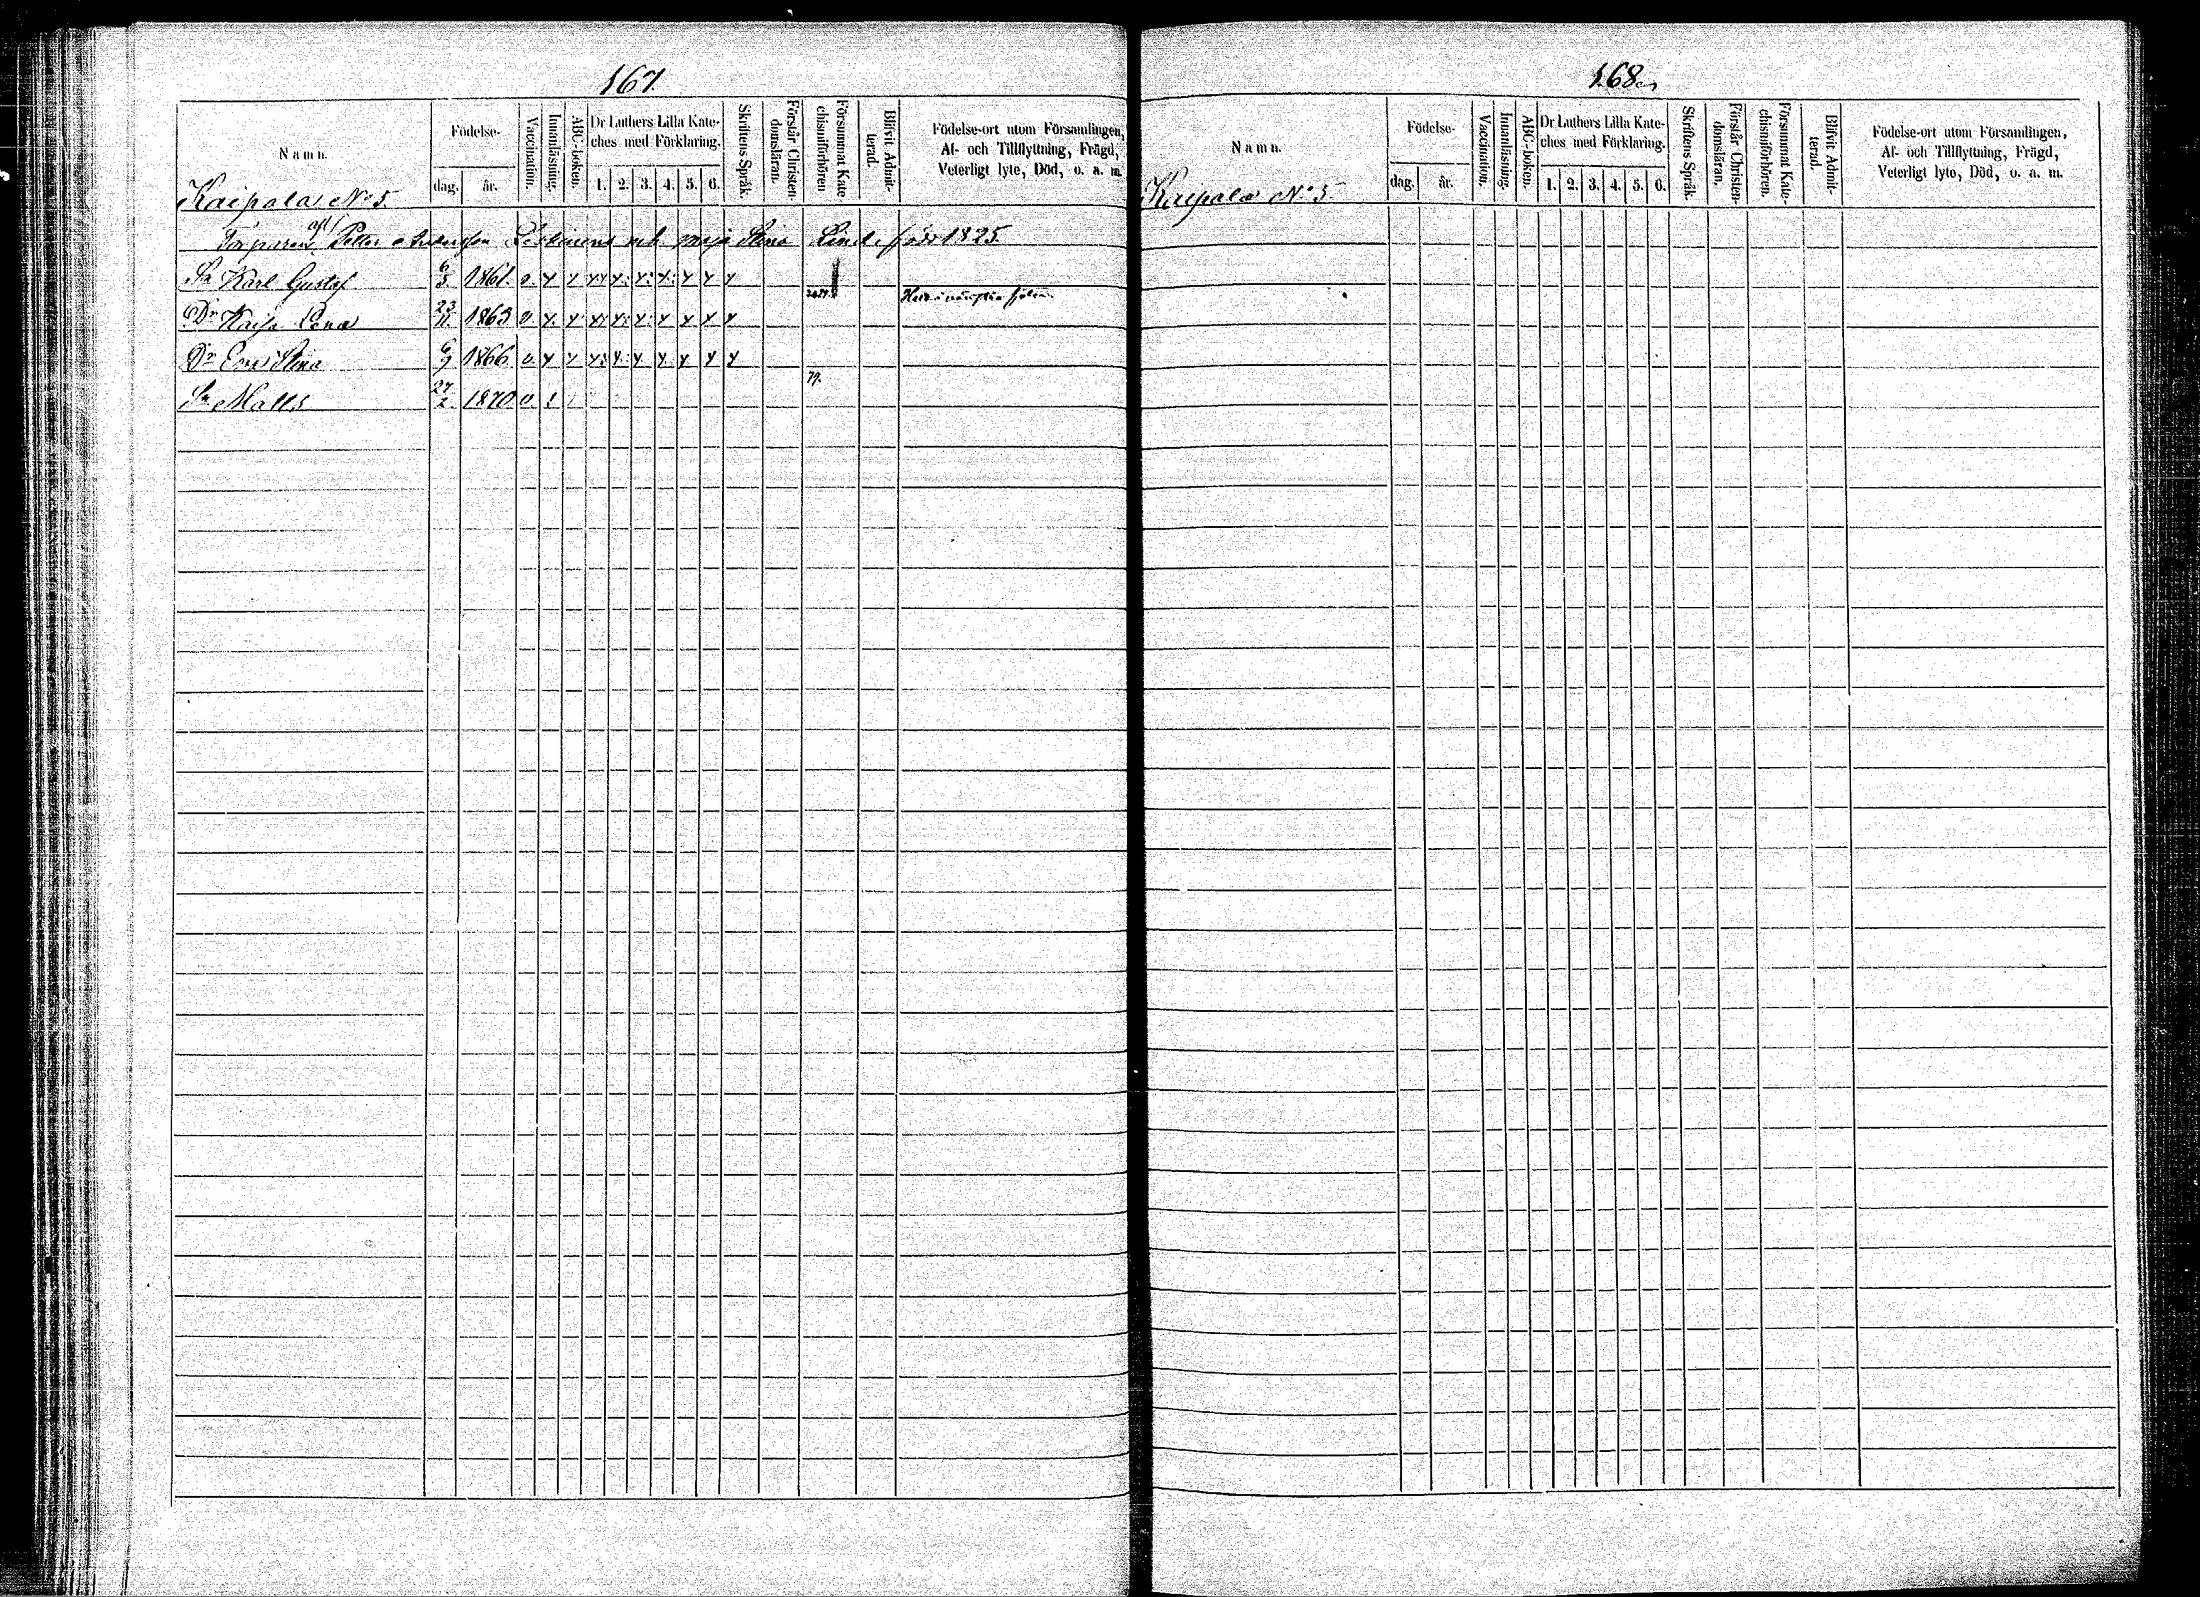 167.
Namn.
Födelse-
dag. år.
Vaccination.
Innanläsning.
ABC-boken.
Dr Luthers Lilla Kate-
ches med Förklaring.
1. 2. 3. 4. 5. 6.
Skriftens Språk.
Förstår Christen-
domsläran.
Försummat Kate-
chismiförhören
Blifvit Admit-
terad.
Födelse-ort utom Församlingen,
Af- och Tillflyttning, Frägd,
Veterligt lyte, Död, o. a. m.
Kaipola No 5.
Torparen Petter Andersson och Maja Stina Lind född 1825.
Sn Karl Gustaf 6/3. 1861. v. x x x x x x x x x
Dr Kaisa Lena 23/11. 1863 v. x x x x x x x x x
Dr Eva Stina 6/9 1866. v. x x x x x x x x x
79.
Sn Matts 27/2. 1870 v.
168.
Namn.
Födelse-
dag. år.
Vaccination.
Innanläsning.
ABC-boken.
Dr Luthers Lilla Kate-
ches med Förklaring.
1. 2. 3. 4. 5. 6.
Skriftens Språk.
Förstår Christen-
domsläran.
Försummat Kate-
chismiförhören.
Blifvit Admit-
terad.
Födelse-ort utom Församlingen,
Af- och Tillflyttning, Frägd,
Veterligt lyte, Död, o. a. m.
Kaipola No 5